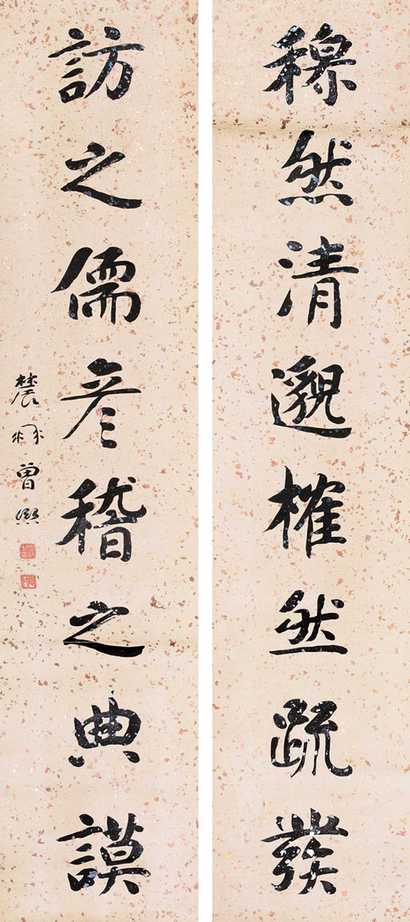 穆然清邈榷然疏發
訪之儒彦稽之典謨
農髯曾熙